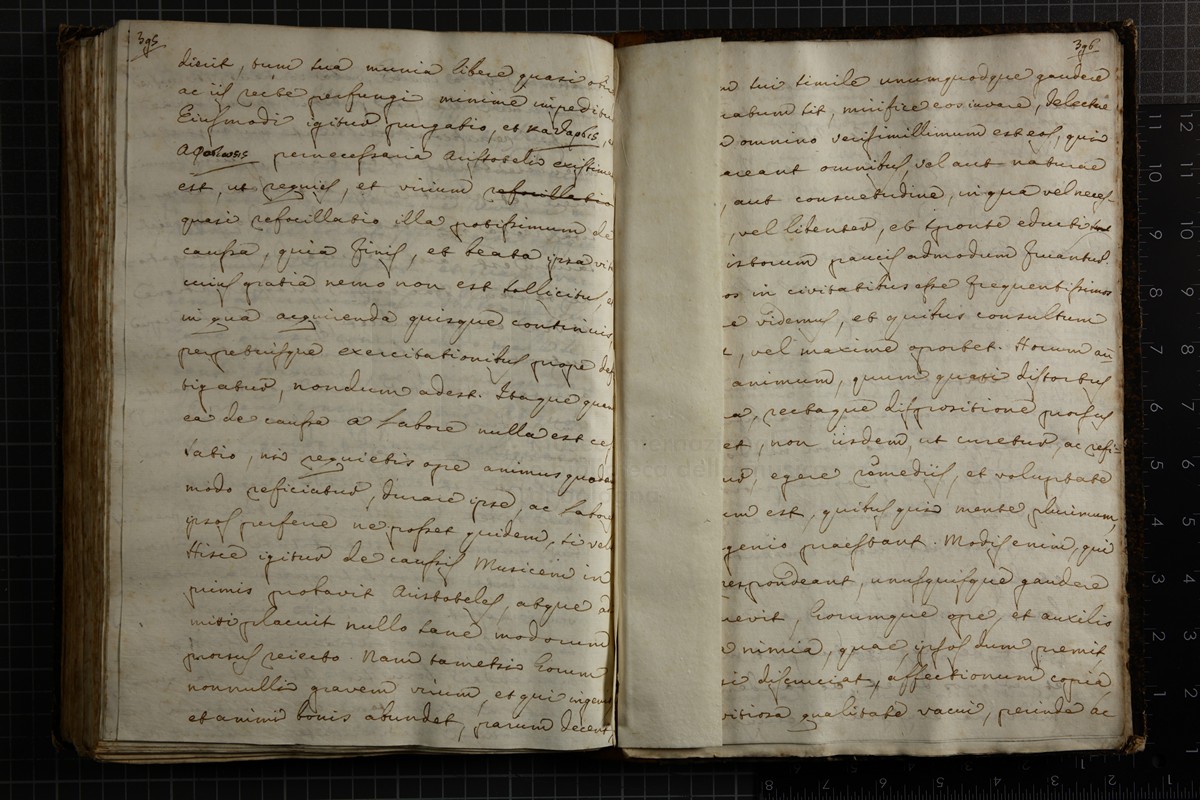 395
dixit, tum sua munia libere quasi obi
ac iis recte perfungi minime impeditu
Eiusmodi igitur purgatio, et καθαρσις,
Αφοσιωσις pernecessaria Aristoteli existima
est, ut requies, et virium refocillatio
quasi refocillatio illa potissimum de
caussa, quia finis, et beata ipsa vit
cuius gratia nemo non est sollicitus, e
in qua acquirenda quisque continuis
perpetuisque exercitationibus prope def
tigatur, nondum adest. Itaque quu
ea de caussa a labore nulla est ces
satio, nisi requietis ope animus quoda
modo reficiatur, durare ipse, ac labore
ipsos perferre ne posset quidem, si vel
Hisce igitur de caussis Musicem in
primis probavit Aristoteles, atque ad
misi placuit nullo sane modorum
prorsus reiecto. Nam tametsi Eorum
nonnulli gravem virum, et qui ingenii
et animi bonis abundet, parum decent,
396
sui simile unumquodque gaudere
abum sit, mirifice eos iuvare, delectare
omnino verisimillimum est eos, quia
areant omnibus, vel aut naturae
, aut consuetudine, in qua vel neces-
, vel libenter, et sponte educti sunt
istorum paucis admodum Iuvantur.
os in civitatibus esse frequentissimos
e videmus, et quibus consultum
, vel maxime oportet. Horum au
animum, quum quasi distortus
a, rectaque dispositione prorsus
et, non iisdem, ut curetur, ac refi-
ur, egere remediis, et voluptate
um est, quibus qui mente plurimum,
genio praestant. Modis enim, qui
respondeant, unusquisque gaudere
nevit, Eorumque ope, et auxilio
nimia, quae ipsos dum premit,
si discruciat, affectionum copia,
vitiosa qualitate vacui, perinde ac